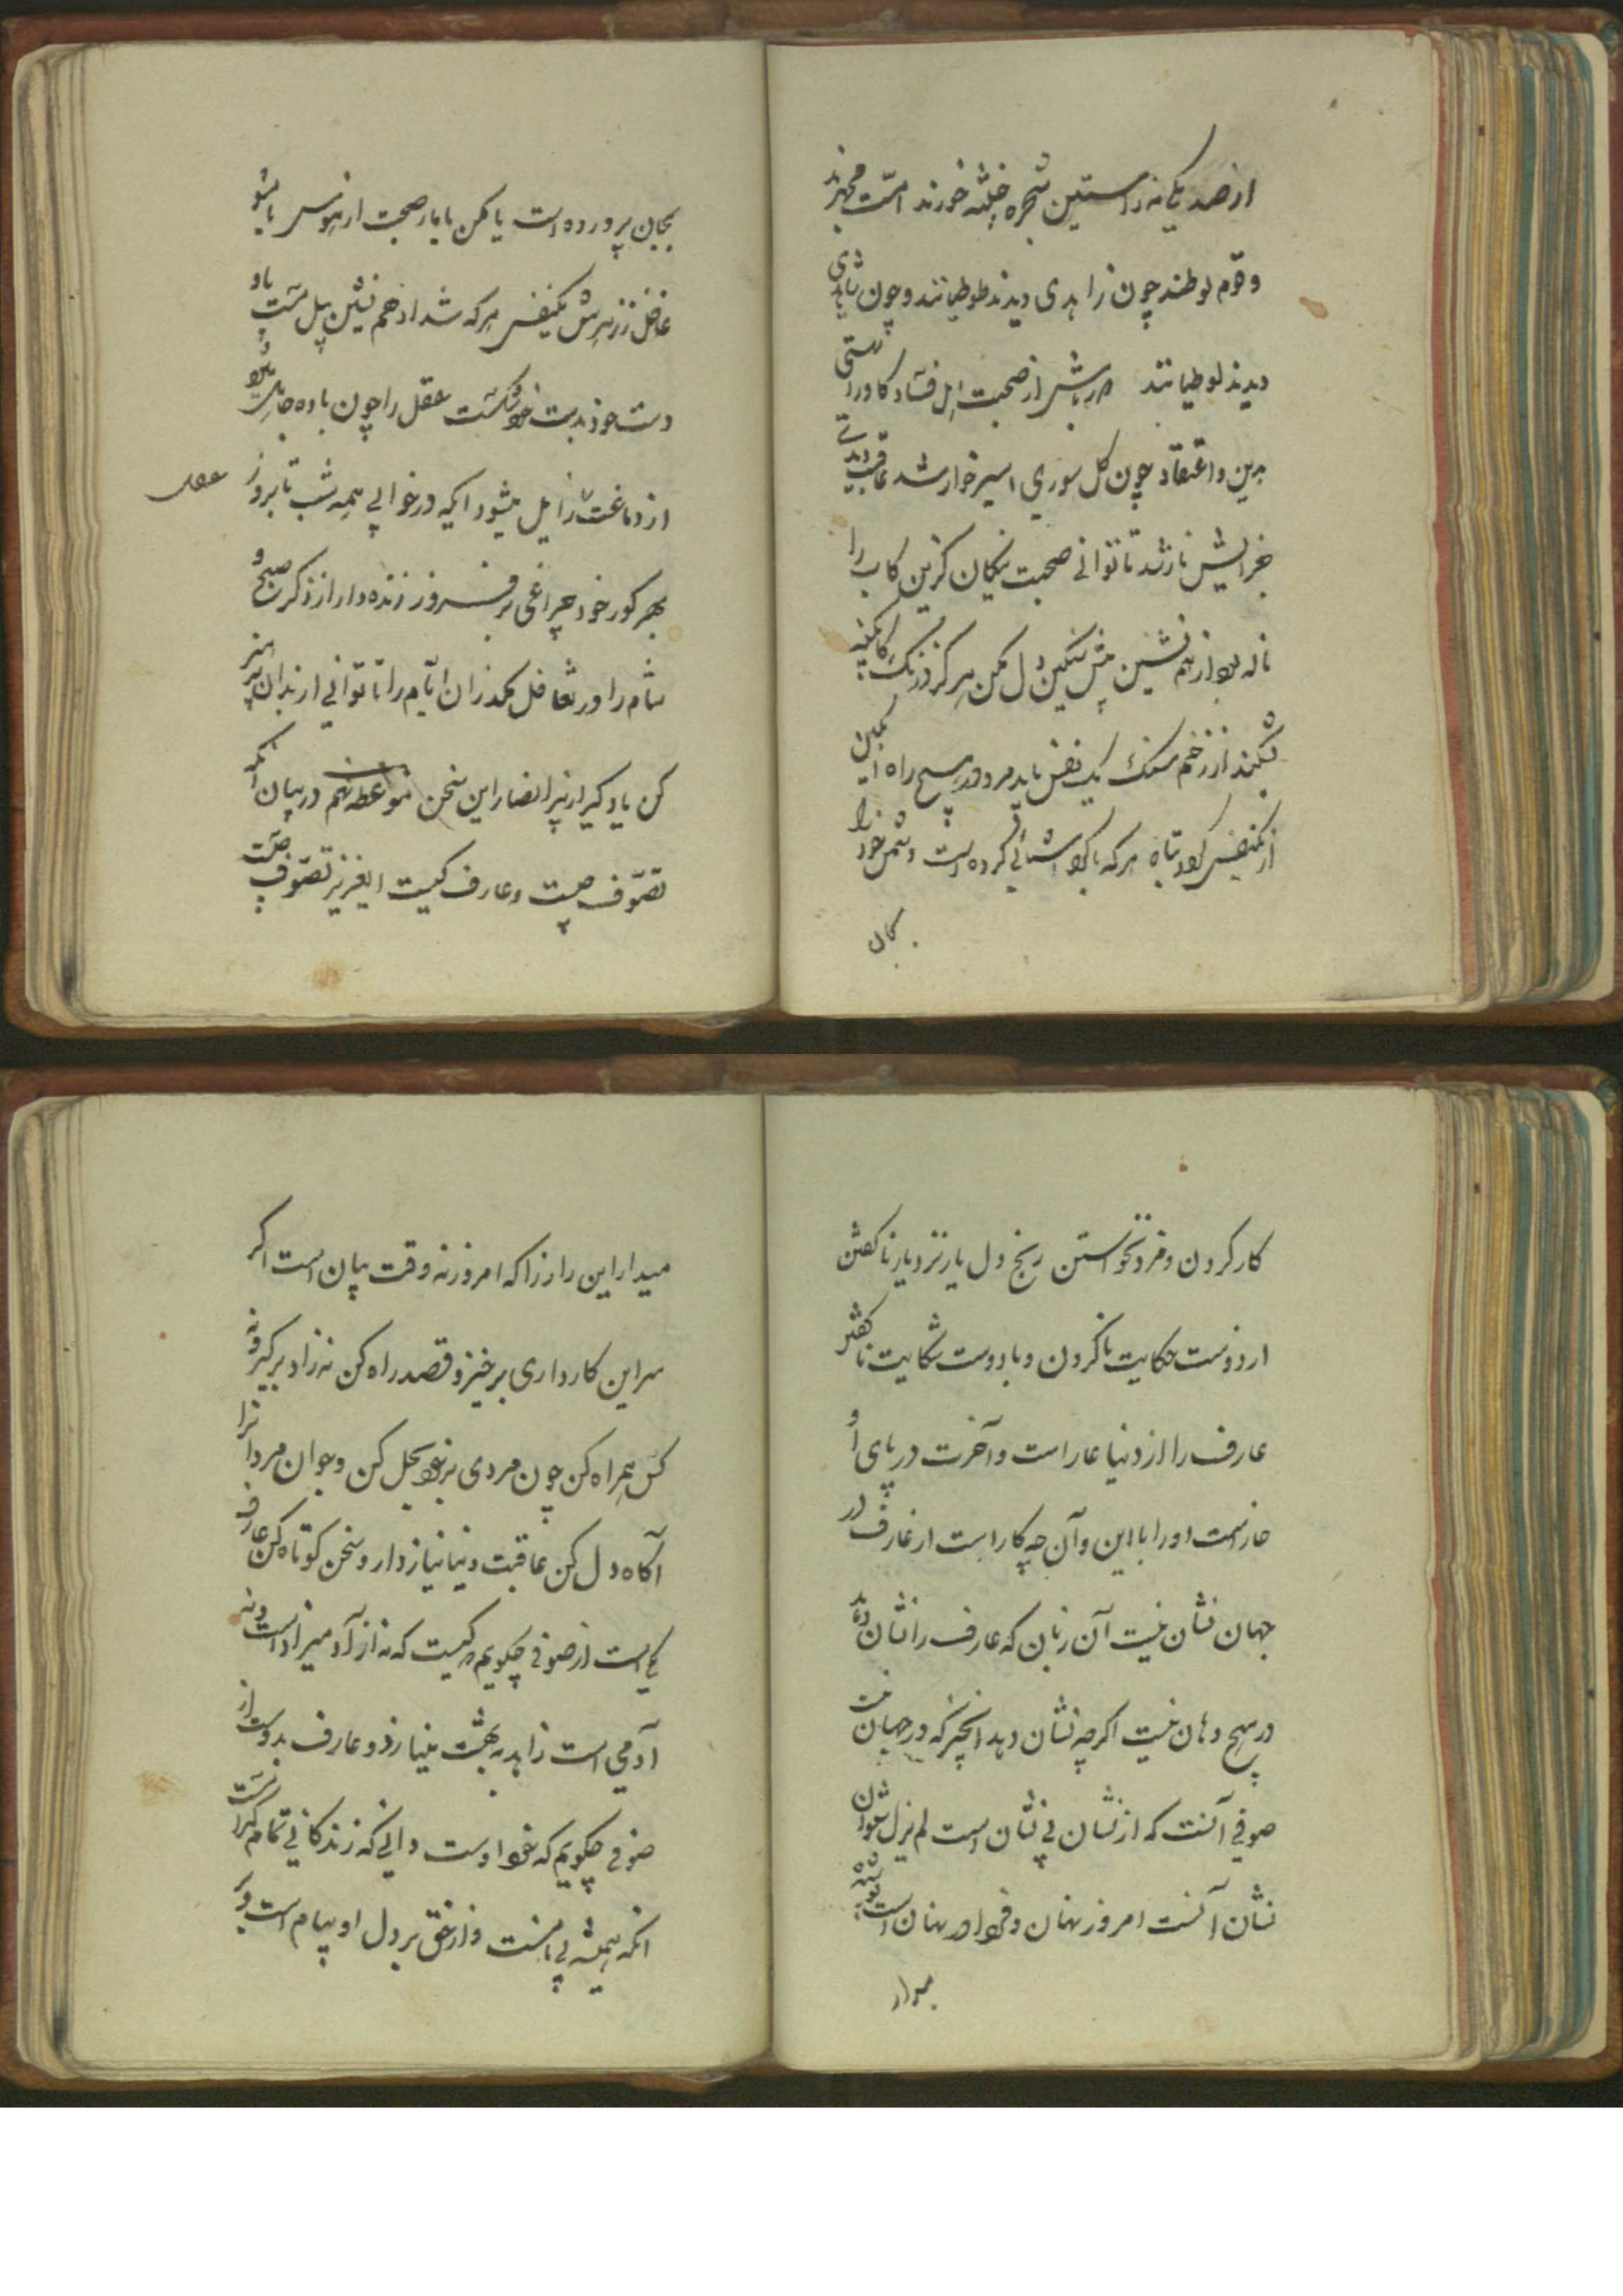 از صد یکی نه راستین شجره خبیثه خورند امّت محمدند
وقوم لوطند چون زاهدی دیدند طوطیانند وچون شاهدی
دیدند لوطیانند باش از صحبت اهل فساد کاورد
دین واعتقاد چون کل سوری اسیر خوار شد عاقبت
جز تا توانی صحبت نیکان کزین کاب را
ناله بود از هم نشین پیش سنکین دل مکن هرکز درنک
بشکند از زخم سنک یک نفس باید مرو در هیچ راه
از یکنفس کردد تباه هرکه با کرد آشنائی کرده است دشمن خود را
بجان
بجان پرورده است یا مکن با یار صحبت از هوس یا مشو
غافل ز نرمیش یکنفس هرکه شد از خم نشین پیل مست
دست خود بدست خود شکست عقل را چون باده
از دماغت زایل میشود ایکه در خوابی همه شب تا بروز
بهر کور خود چراغی بر فروز زنده دار از ذکر صبح و
شام را در تغافل مکذران ایّام را تا توانی
کن یاد کیر از پیر انصار این سخن موعظه نهم در بیان آنکه
تصوّف چیست وعارف کیست ایعزیز تصوّف چیست
کار کردن ومزد نخواستن رنج دل یار نزد یار ناکفتن
از دوست حکایت ناکردن وبا دوست شکایت ناکفتن
عارف را از دنیا عار است وآخرت در پای او
خار است او را با این وآن چه کار است از عارف در
جهان نشان نیست آن زبان که عارف را نشان دهد
در هیچ دهان نیست اکرچه نشان دهد انچیز که در جهان نیست
صوفی آنست که از نشان بی نشان است لم یزل
نشان آنست امروز نهان وفردا در نهان است
میدار
میدار این راز را که امروز نه وقت بیان است اکر
سر این کار داری برخیز وقصد راه کن نه زاد برکیر ونه
کس همراه کن چون مردی بزی بحل کن وجوان مردانرا
آکاه دل کن عاقبت دنیا نیاز دار وسخن کوتاه کن عارف
کی است از صوفی چکویم کیست که نه از آدمیزاد است ونه
آدمی است زاهد به بهشت مینازد وعارف بدوست از
صوفی چکویم که خود اوست دانی که زندکانی تمام کراست
انکه همیشه بی نامست واز حق بر دل او پیام است